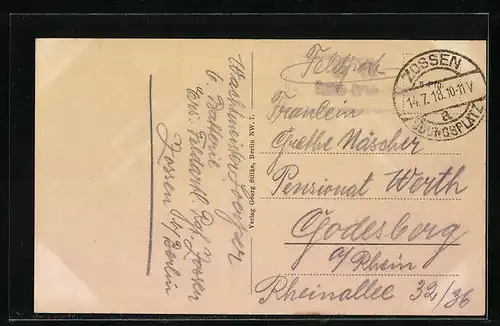 Wachtmeister
6. Batterie
Ers. Feldartl. Rgt. Zossen
Zossen b/Berlin
Verlag Georg Stilke, Berlin NW. 7.
Feldpost
ZOSSEN
14.7.18.10-11V
a
ÜBUNGSPLATZ
Fräulein
Grethe Näscher
Pensionat Werth
Godesberg
a/Rhein
Rheinallee 32/36